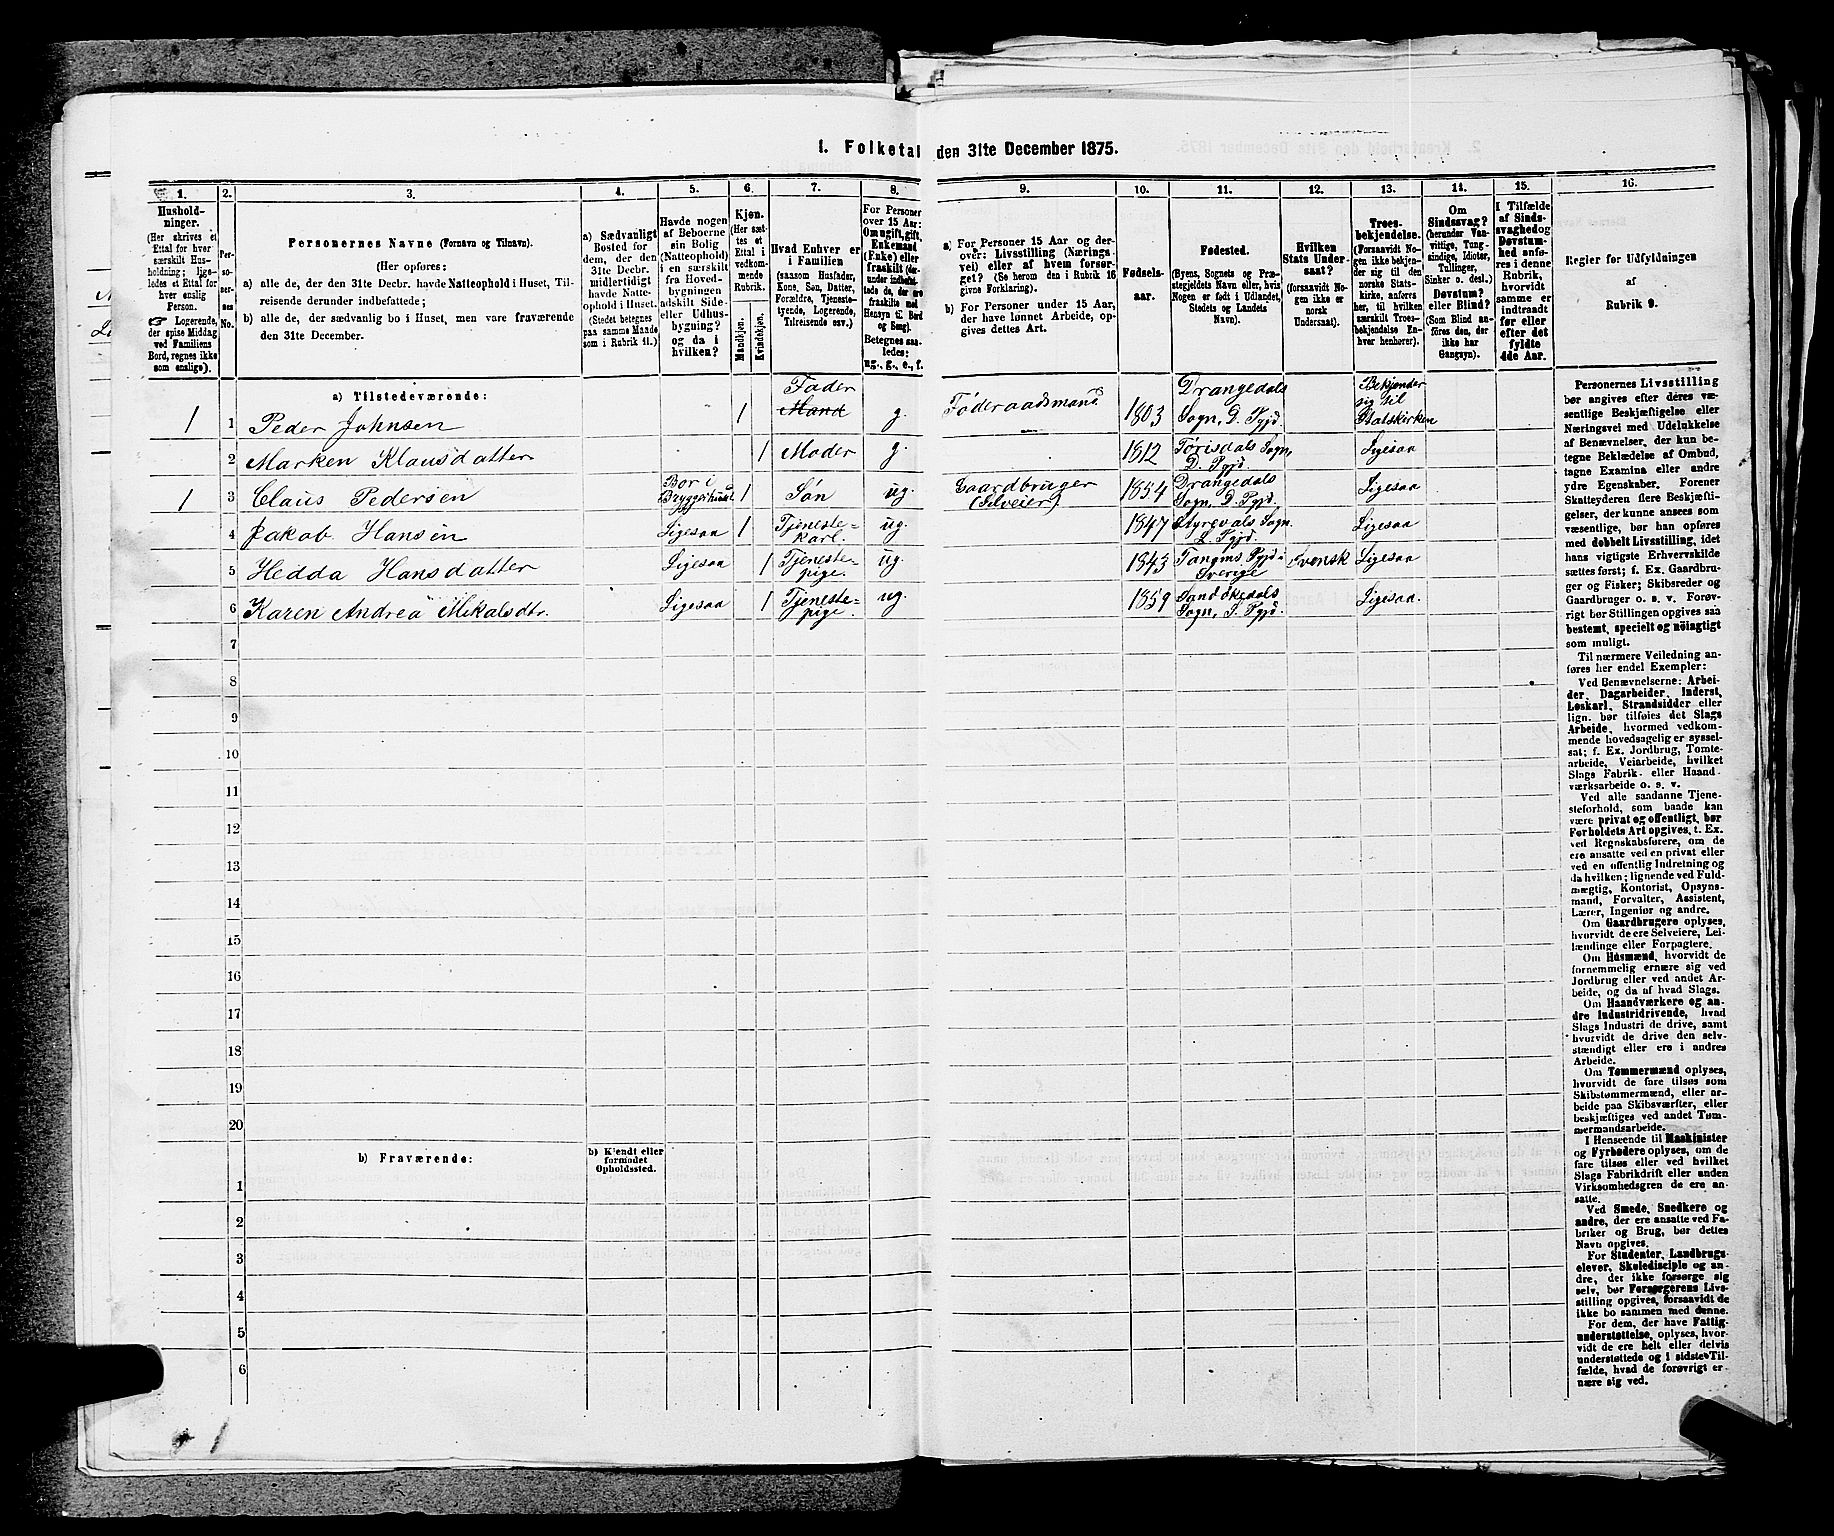 1. Folketal den 31te December 1875.
1. 2. 3. 4. 5. 6. 7. 8. 9. 10. 11. 12. 13. 14. 15. 16.
Husholdninger.
(Her skrives et
Ettal for hver
særskilt Husholdning;
ligeledes et Ettal for
hver enslig
Person.
Logerende,
der spise Middag
ved Familiens
Bord, regnes ikke
som enslige).
Personernes No.
Personernes Navne (Fornavn og Tilnavn).
(Her opføres:
a) alle de, der den 31te Decbr. havde Natteophold i Huset, Tilreisende derunder indbefattede;
b) alle de, der sædvanlig bo i Huset, men vare fraværende
den 31te December.
a) Sædvanligt
Bosted for
dem, der den
31te Decbr.
midlertidigt
havde Natteophold i Huset.
(Stedet betegnes
paa samme Maade
som i Rubrik 11.)
Havde nogen
af Beboerne
sin Bolig
(Natteophold)
i en særskilt
fra Hovedbygningen
adskilt Side-
eller Udhusbygning?
og da i
hvilken?
Kjøn.
(Her sættes et
Ettal i
vedkommende
Rubrik.
Mandkjøn.
Kvindekjøn.
Hvad Enhver er
i Familien
(saasom Husfader,
Kone, Søn, Datter,
Forældre, Tjenestetyende, Logerende,
Tilreisende osv.)
For Personer
over 15 Aar:
Om ugift, gift,
Enkemand
(Enke) eller
fraskilt
Betegnes saaledes:
ug., g., e., f.
a) For Personer 15 Aar og derover: Livsstilling (Næringsvei) eller af hvem forsørget? (Se herom den i Rubrik 16
givne Forklaring).
b) For Personer under 15 Aar,
der have lønnet Arbeide, opgives dettes Art.
Fødselsaar.
Fødested.
(Byens, Sognets og Præstegjeldets Navn eller, hvis
Nogen er født i Udlandet,
Stedets og Landets
Navn).
Hvilken
Stats Undersaat?
(forsaavidt Nogen ikke er
norsk
Undersaat).
Troesbekjendelse.
(Forsaavidt Nogen ikke bekjender sig til den
norske Statskirke, anføres
her, til hvilken
særskilt Troesbekjendelse Enhver henhører).
Om
Sindssvag?
(herunder Vanvittige, Tungsindige, Idioter,
Tullinger,
Sinker o. desl.)
Døvstum?
eller Blind?
(Som Blind anføres den, der
ikke har
Gangsyn).
I Tilfælde
af Sindssvaghed og
Døvstumhed anføres i denne
Rubrik,
hvorvidt
samme er
indtraadt
før eller
efter det
fyldte
4de Aar.
Regler for Udfyldningen
af
Rubrik 9.
a) Tilstedeværende:
1 1 Peder Johnsen 1 Fader Mand g. Føderaadsmand 1803 Drangedals Sogn, D. Pgjd. Bekjender sig til Statskirken
2 Marken Klausdatter 1 Moder g. 1812 Tørisdals Sogn, D. Pgjd. Ligesaa
1 3 Claus Pedersen Bor i Bryggerhuset 1 Søn ug. Gaardbruger (Selveier) 1854 Drangedals Sogn, D. Pgjd. Ligesaa
4 Jakob Hansen Ligesaa 1 Tjenestekarl. ug. 1847 Sogn. Pgjd. Ligesaa
5 Hedda Hansdatter Ligesaa 1 Tjeneste=pige. ug. 1843 Pgjd i Sverige Svensk Ligesaa
6 Karen Andrea Mikalsdtr. Ligesaa 1 Tjeneste=pige ug. 1859 Sogn, Pgjd. Ligesaa.
7
8
9
10
11
12
13
14
15
16
17
18
19
20
b) Fraværende:
b) Kjendt eller
formodet
Opholdssted.
1
2
3
4
5
6
Personernes Livsstilling
bør angives efter deres væsentlige Beskjæftigelse eller
Næringsvei med Udelukkelse
af Benævnelser, der kun betegne Beklædelse af Ombud,
tagne Examina eller andre
ydre Egenskaber. Forener
Skatteyderen flere Beskjæftigelser, der kunne ansees som
væsentlige, bør han opføres
med dobbelt Livsstilling, idet
hans vigtigste Erhvervskilde
sættes først; f. Ex. Gaardbruger og Fisker; Skibsreder og
Gaardbruger o. s. v. Forøvrigt bør Stillingen opgives saa
bestemt, specielt og nöiagtigt
som muligt.
Til nærmere Veiledning anføres her endel Exempler:
Ved Benævnelserne: Arbeider, Dagarbeider, Inderst,
Løskarl, Strandsidder eller
lign. bør tilføies det Slags
Arbeide, hvormed vedkommende hovedsagelig er sysselsat; f. Ex. Jordbrug, Tomtearbeide, Veiarbeide, hvilket
Slags Fabrik- eller Haandværksarbeide o. s. v.
Ved alle saadanne Tjenesteforhold, som baade kan
være privat og offentligt, bør
Forholdets Art opgives, t. Ex.
ved Regnskabsførere, om de
ere ansatte ved en privat eller
ved en offentlig Indretning og
da hvilken; lignende ved Fuldmægtig, Kontorist, Opsynsmand, Forvalter, Assistent,
Lærer, Ingeniør og andre.
Om Gaardbrugere oplyses,
hvorvidt de ere Selveiere, Leilændinge eller Forpagtere.
Om Husmænd, hvorvidt de
fornemmelig ernære sig ved
Jordbrug eller ved andet Arbeide, og da af hvad Slags.
Om Haandværkere og andre Industridrivende, hvad
Slags Industri de drive, samt
hvorvidt de drive den selvstændigt eller ere i andres
Arbeide.
Om Tømmermænd oplyses,
hvorvidt de fare tilsøs som
Skibstømmermænd, eller arbeide paa Skibsværfter, eller
beskjæftiges ved andet Tømmermandsarbeide.
I Henseende til Maskinister
og Fyrbødere oplyses, om de
fare tilsøs eller ved hvilket
Slags Fabrikdrift eller anden
Virksomhedsgren de ere ansatte.
Ved Smede, Snedkere og
andre, der ere ansatte ved Fabriker og Brug, bør dettes
Navn opgives.
For Studenter, Landbrugselever, Skoledisciple og andre, der ikke forsørge sig
selv, bør Forsørgerens Livsstilling opgives, forsaavidt de
ikke bo sammen med denne.
For dem, der have Fattigunderstøttelse, oplyses, hvorvidt de ere helt eller delvis
understøttede og i sidste Tilfælde, hvad de forøvrigt ernære sig ved.
1